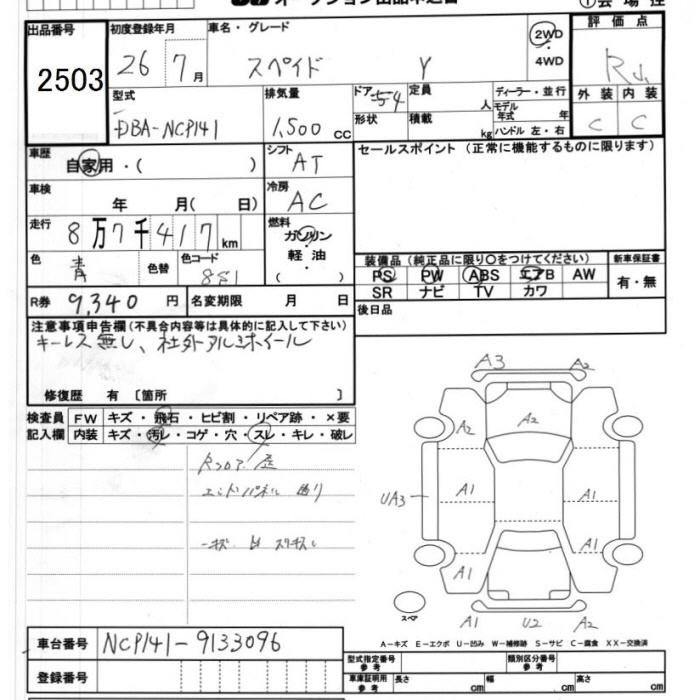 オークション出品申込書
①会場控
出品番号 初度登録年月 車名・グレード 2WD 4WD 評価点
2503 26 7月 スペイド Y
型式 排気量 ドア 5 4 定員 人 ディーラー・並行 外装 内装
DBA-NCP141 1,500 cc 形状 積載 kg モデル年式 年 ハンドル 左・右 C C
車歴 自家用・( ) シフト AT セールスポイント (正常に機能するものに限ります)
車検 年 月( 日) 冷房 AC
走行 8万7千417km 燃料 ガソリン 軽油 ( )
色 青 色替 色コード 881
装備品 (純正品に限り○をつけてください) 新車保証書
PS PW ABS エアB AW 有・無
SR ナビ TV カワ
R券 9,340円 名変期限 月 日 後日品
注意事項申告欄(不具合内容等は具体的に記入して下さい)
キーレス無し、社外アルミホイール
修復歴 有 〔箇所 〕
検査員 FW キズ・飛石・ヒビ割・リペア跡・×要
記入欄 内装 キズ・汚レ・コゲ・穴・スレ・キレ・破レ
エンドパネル
A3 A2
A2 A2
A1 A1
UA3
A1 A1
スペア
A1 U2 A2
A-キズ E-エクボ U-凹み W-補修跡 S-サビ C-腐食 XX-交換済
車台番号 NCP141-9133096
型式指定番号 参考 類別区分番号 参考
登録番号 車庫証明用 参考 長さ cm 幅 cm 高さ cm